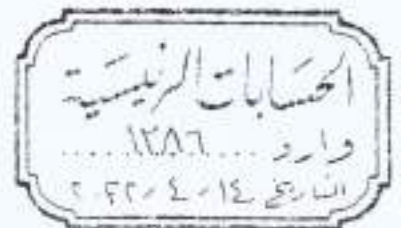 الحسابات الرئيسية
وارد ....١٣٨٦....
التاريخ ١٤ / ٤ / ٢٠٢٢